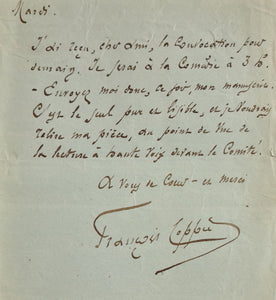 Mardi.
J'ai reçu, cher ami, la convocation pour
demain. Je serai à la Comédie à 3 h.
- Envoyez moi donc, ce soir, mon manuscrit.
C'est le seul pur et lisible, et je voudrais
relire ma pièce, au point de vue de
la lecture à haute voix devant le Comité.
A vous de cœur - et merci
François Coppée